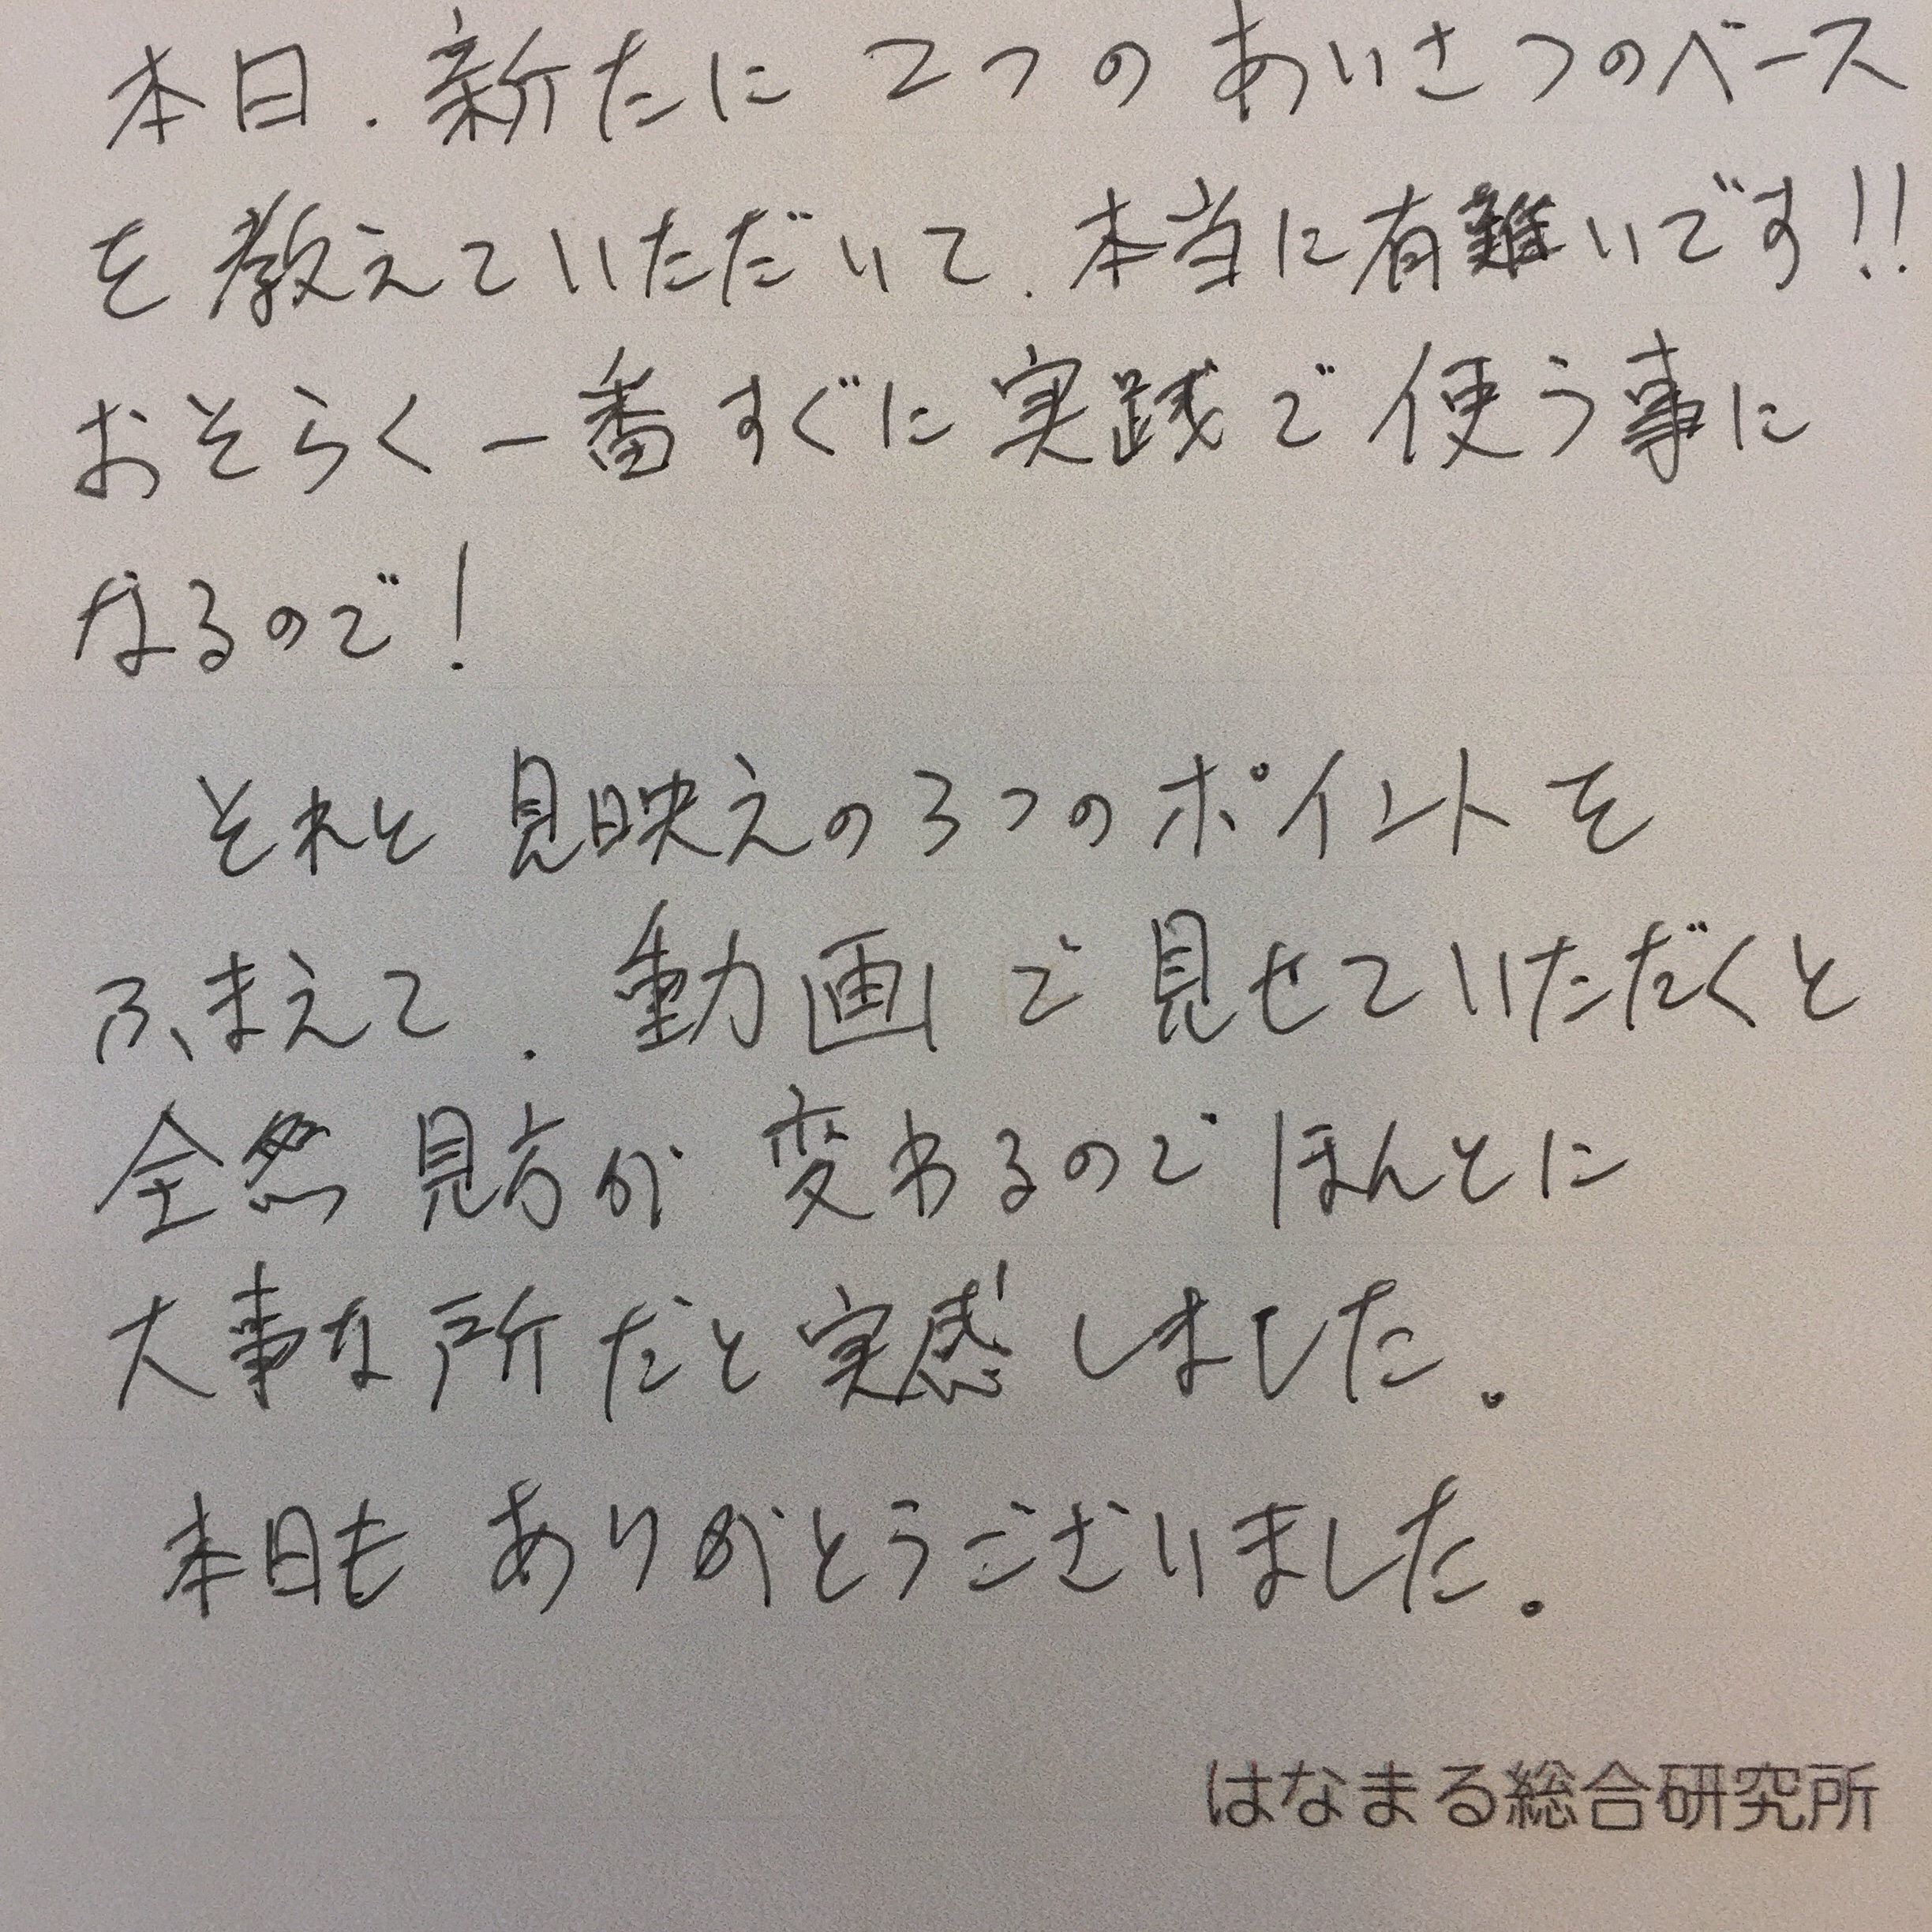 本日、新たに2つのあいさつのベース
を教えていただいて、本当に有難いです!!
おそらく一番すぐに実践で使う事に
なるので!
それと見映えの3つのポイントを
ふまえて、動画で見せていただくと
全然見方が変わるのでほんとに
大事な所だと実感しました。
本日もありがとうございました。
はなまる総合研究所